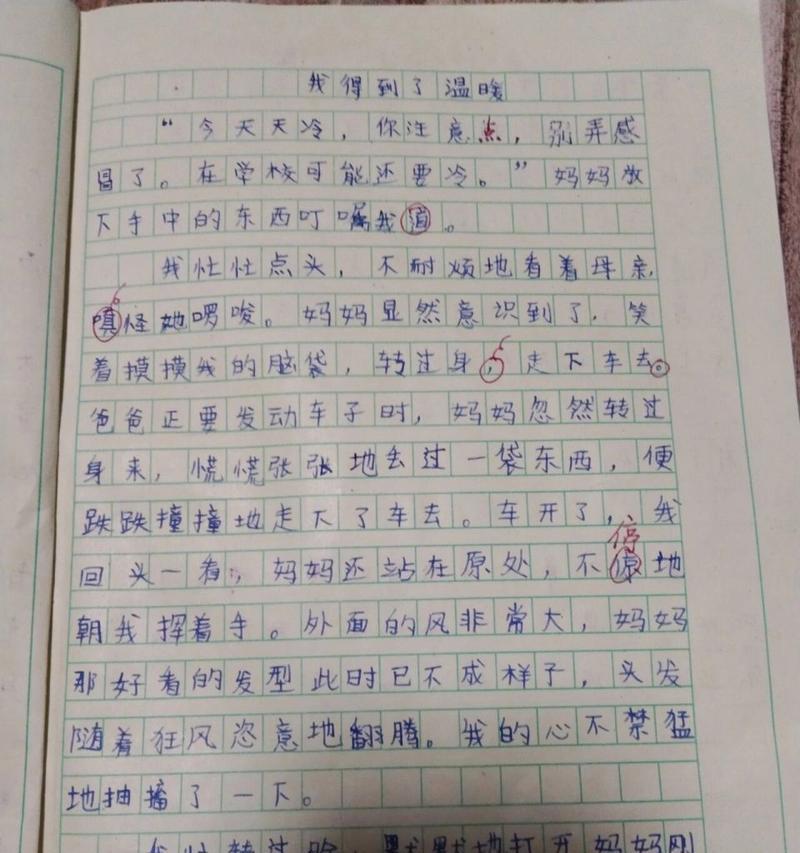 我得到了温暖
“今天天冷，你注意点，别弄感
冒了。在学校可能还要冷。”妈妈放
下手中的东西叮嘱我道。
我忙忙点头，不耐烦地看着母亲，
嗔怪她啰唆。妈妈显然意识到了，笑
着摸摸我的脑袋，转过身，走下车去。
爸爸正要发动车子时，妈妈忽然转过
身来，慌慌张张地丢过一袋东西，便
跌跌撞撞地走下了车去。车开了，我
停
回头一看，妈妈还站在原处，不地
朝我挥着手。外面的风非常大，妈妈
那好看的发型此时已不成样子，头发
随着狂风恣意地翻腾。我的心不禁猛
地抽搐了一下。
我忙转过脸，默默地打开妈妈刚